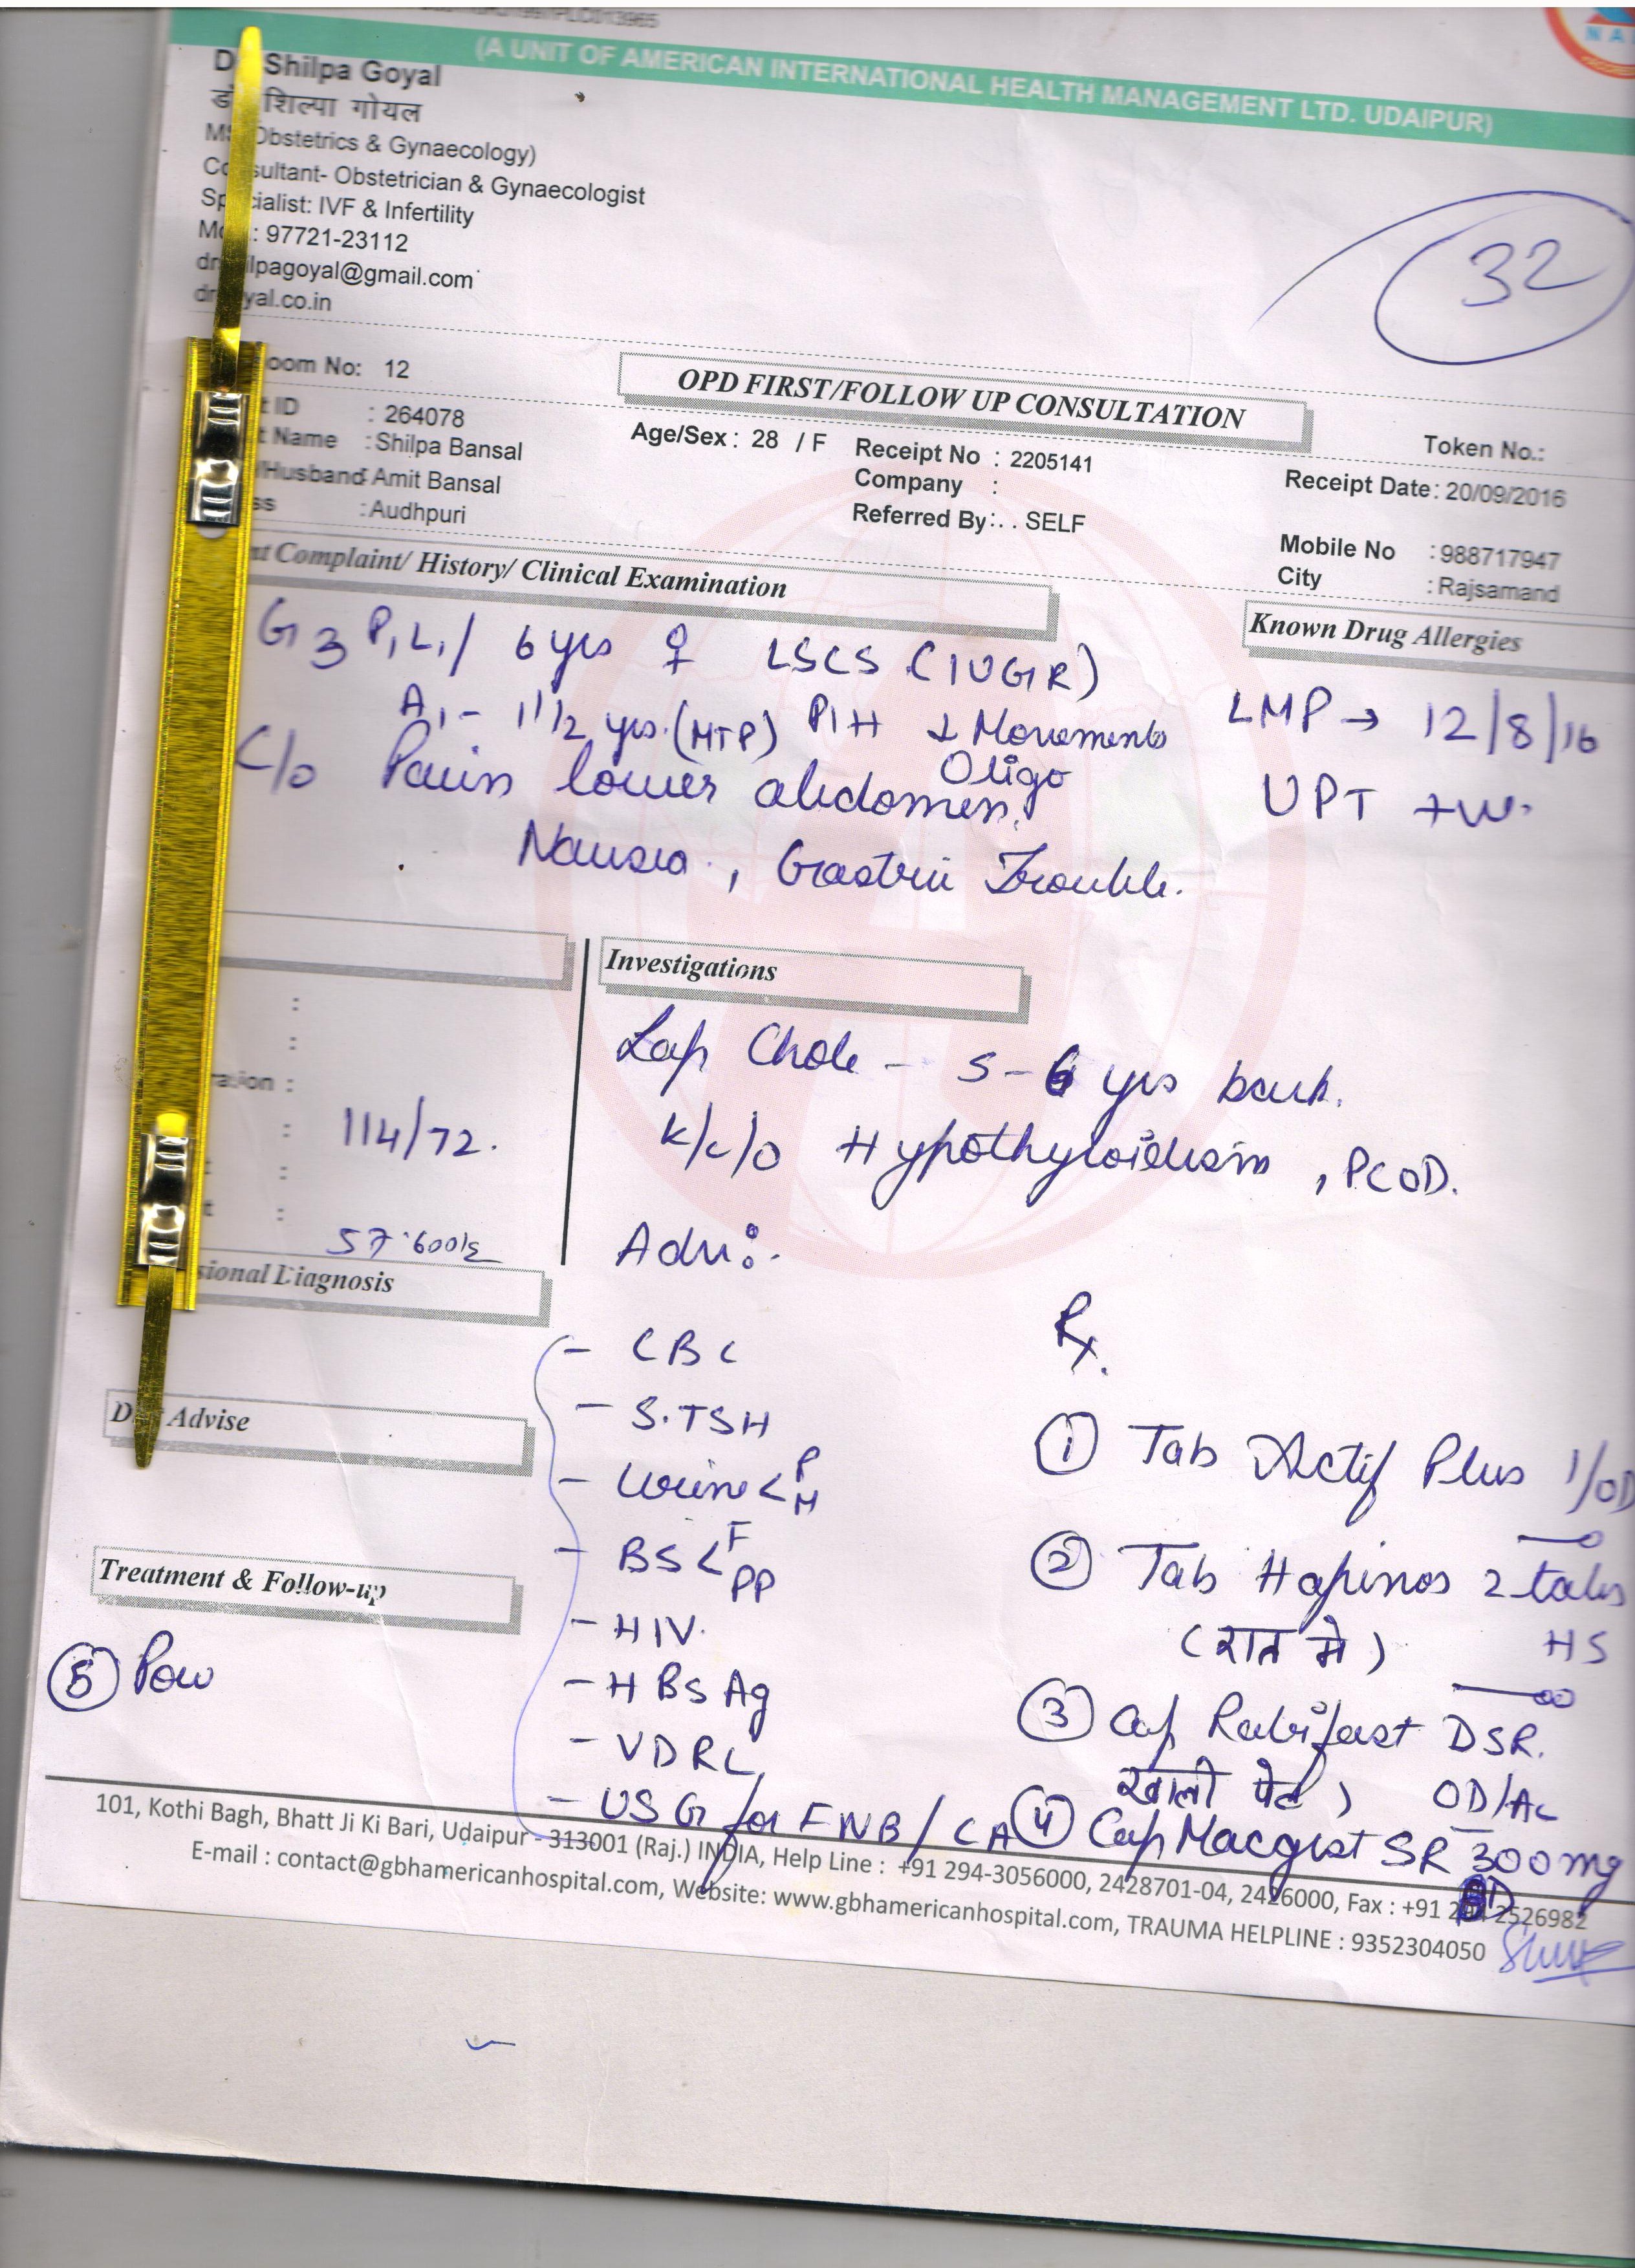 (A UNIT OF AMERICAN INTERNATIONAL HEALTH MANAGEMENT LTD. UDAIPUR)
Shilpa Goyal
शिल्पा गोयल
Obstetrics & Gynaecology)
Consultant- Obstetrician & Gynaecologist
Specialist: IVF & Infertility
: 97721-23112
ilpagoyal@gmail.com
yal.co.in
32
oom No: 12
OPD FIRST/FOLLOW UP CONSULTATION
Token No.:
t ID : 264078
t Name : Shilpa Bansal
Age/Sex : 28 / F
Receipt No : 2205141
Receipt Date : 20/09/2016
/Husband : Amit Bansal
Company :
ss : Audhpuri
Referred By : . . SELF
Mobile No : 988717947
City : Rajsamand
nt Complaint/ History/ Clinical Examination
Known Drug Allergies
G3 P1L1/ 6 yrs ♀ LSCS (IUGR)
A1 - 1 1/2 yrs. (MTP) PIH ↓ Movements
Oligo
LMP → 12/8/16
C/o Pain lower abdomen.
UPT +ve
Nausea, Gastric Trouble.
Investigations
Lap Chole - 5-6 yrs back.
ration :
: 114/72.
K/c/o Hypothyroidism, PCOD.
57.600
Adv:-
sional Diagnosis
Rx.
- CBC
- S.TSH
Advise
① Tab Actif Plus 1/OD
- Urine < P M
- BS < F PP
② Tab Hapinos 2 tabs
(रात मे) HS
Treatment & Follow-up
- HIV.
⑤ Pow
- HBsAg
③ Cap Rabifast DSR.
- VDRL
खाली पेट ) OD/AC
- USG for FNB / CA
④ Cap Macgest SR 300mg
BD
101, Kothi Bagh, Bhatt Ji Ki Bari, Udaipur - 313001 (Raj.) INDIA, Help Line : +91 294-3056000, 2428701-04, 2426000, Fax : +91 2 2526982
E-mail : contact@gbhamericanhospital.com, Website: www.gbhamericanhospital.com, TRAUMA HELPLINE : 9352304050